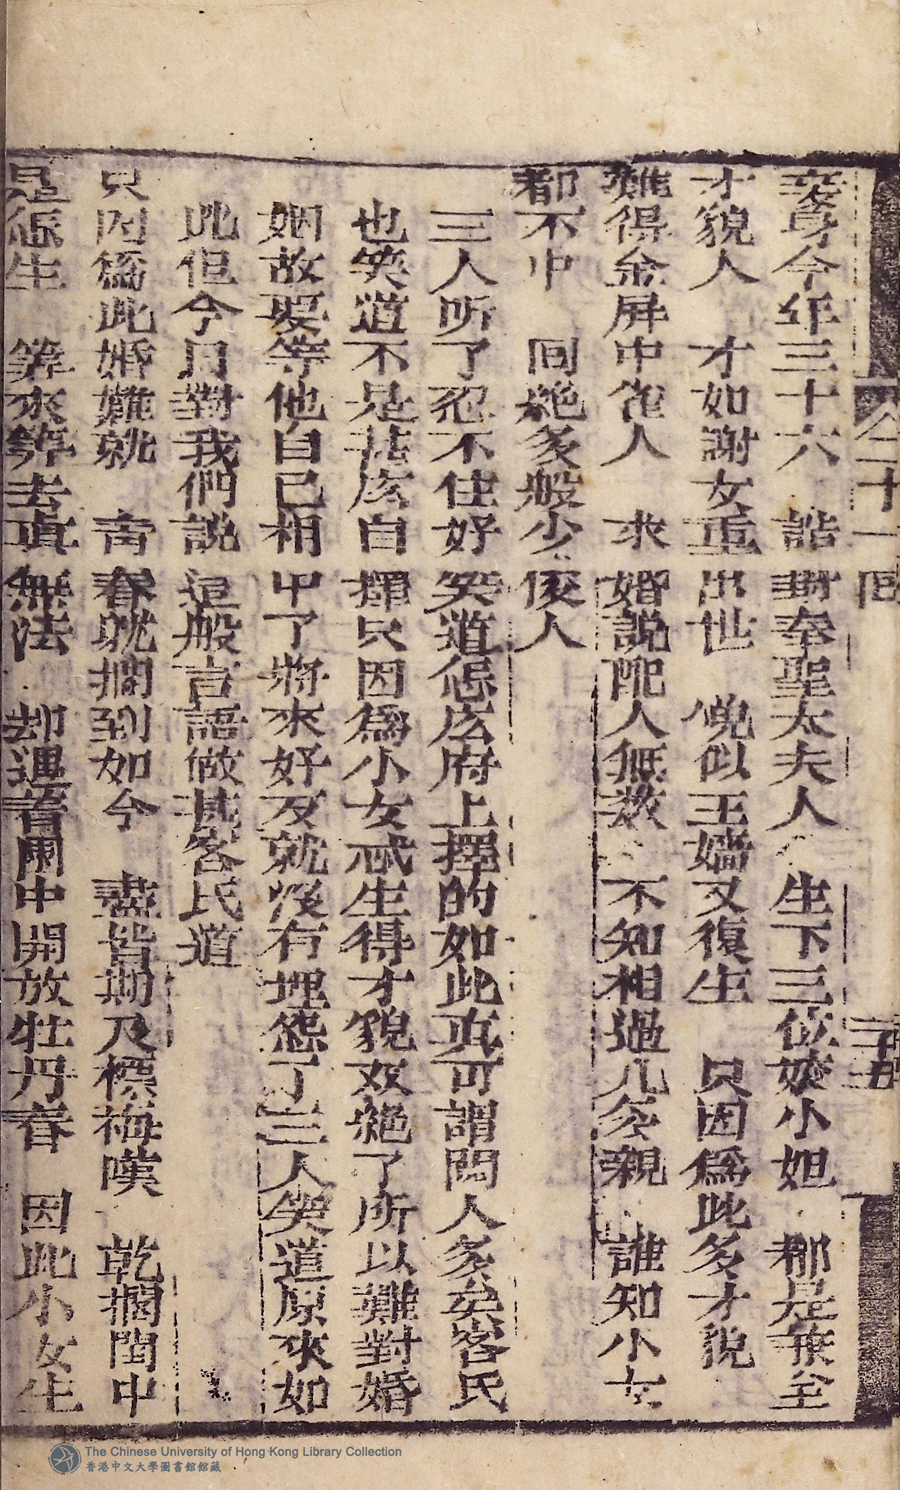 妾身今年三十六 誥封奉聖太夫人 生下三位嫂小姐 都是秉全
才貌人 才如謝女重出世 㒵似王嬙又復生 只因為此多才貌
難得金屏中雀人 求婚說配人無数 不知相過几多親 誰知小女
都不中 回絶多般少俊人
三人听了忍不住好笑道怎庅府上擇的如此真可謂閱人多矣客氏
也笑道不是甚庅自擇只因為小女忒生得才貌双絶了所以難對婚
姻故要等他自已相中了將來好歹就没有埋怨了三人笑道原來如
此但今日對我們說這般言語做甚客氏道
只因為此婚難就 青春躭擱到如今 盡皆期及標梅嘆 乾擱閨中
是怎生 筭來筭去真無法 却遇着園中開放牡丹春 因此小女生
二十一回
二十五
The Chinese University of Hong Kong Library Collection
香港中文大學圖書館館藏